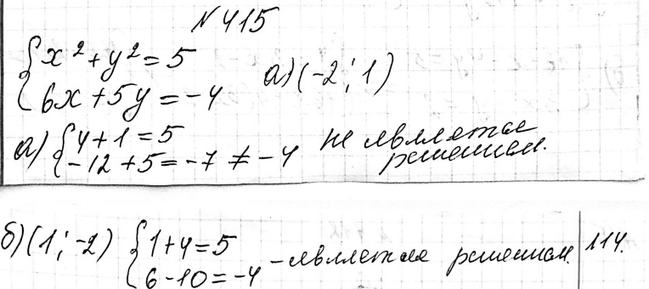 № 415
{x² + y² = 5
{6x + 5y = -4
а) (-2; 1)
а) {4 + 1 = 5
{-12 + 5 = -7 ≠ -4
не является решением.
б) (1; -2) {1 + 4 = 5
{6 - 10 = -4
- является решением.
114.